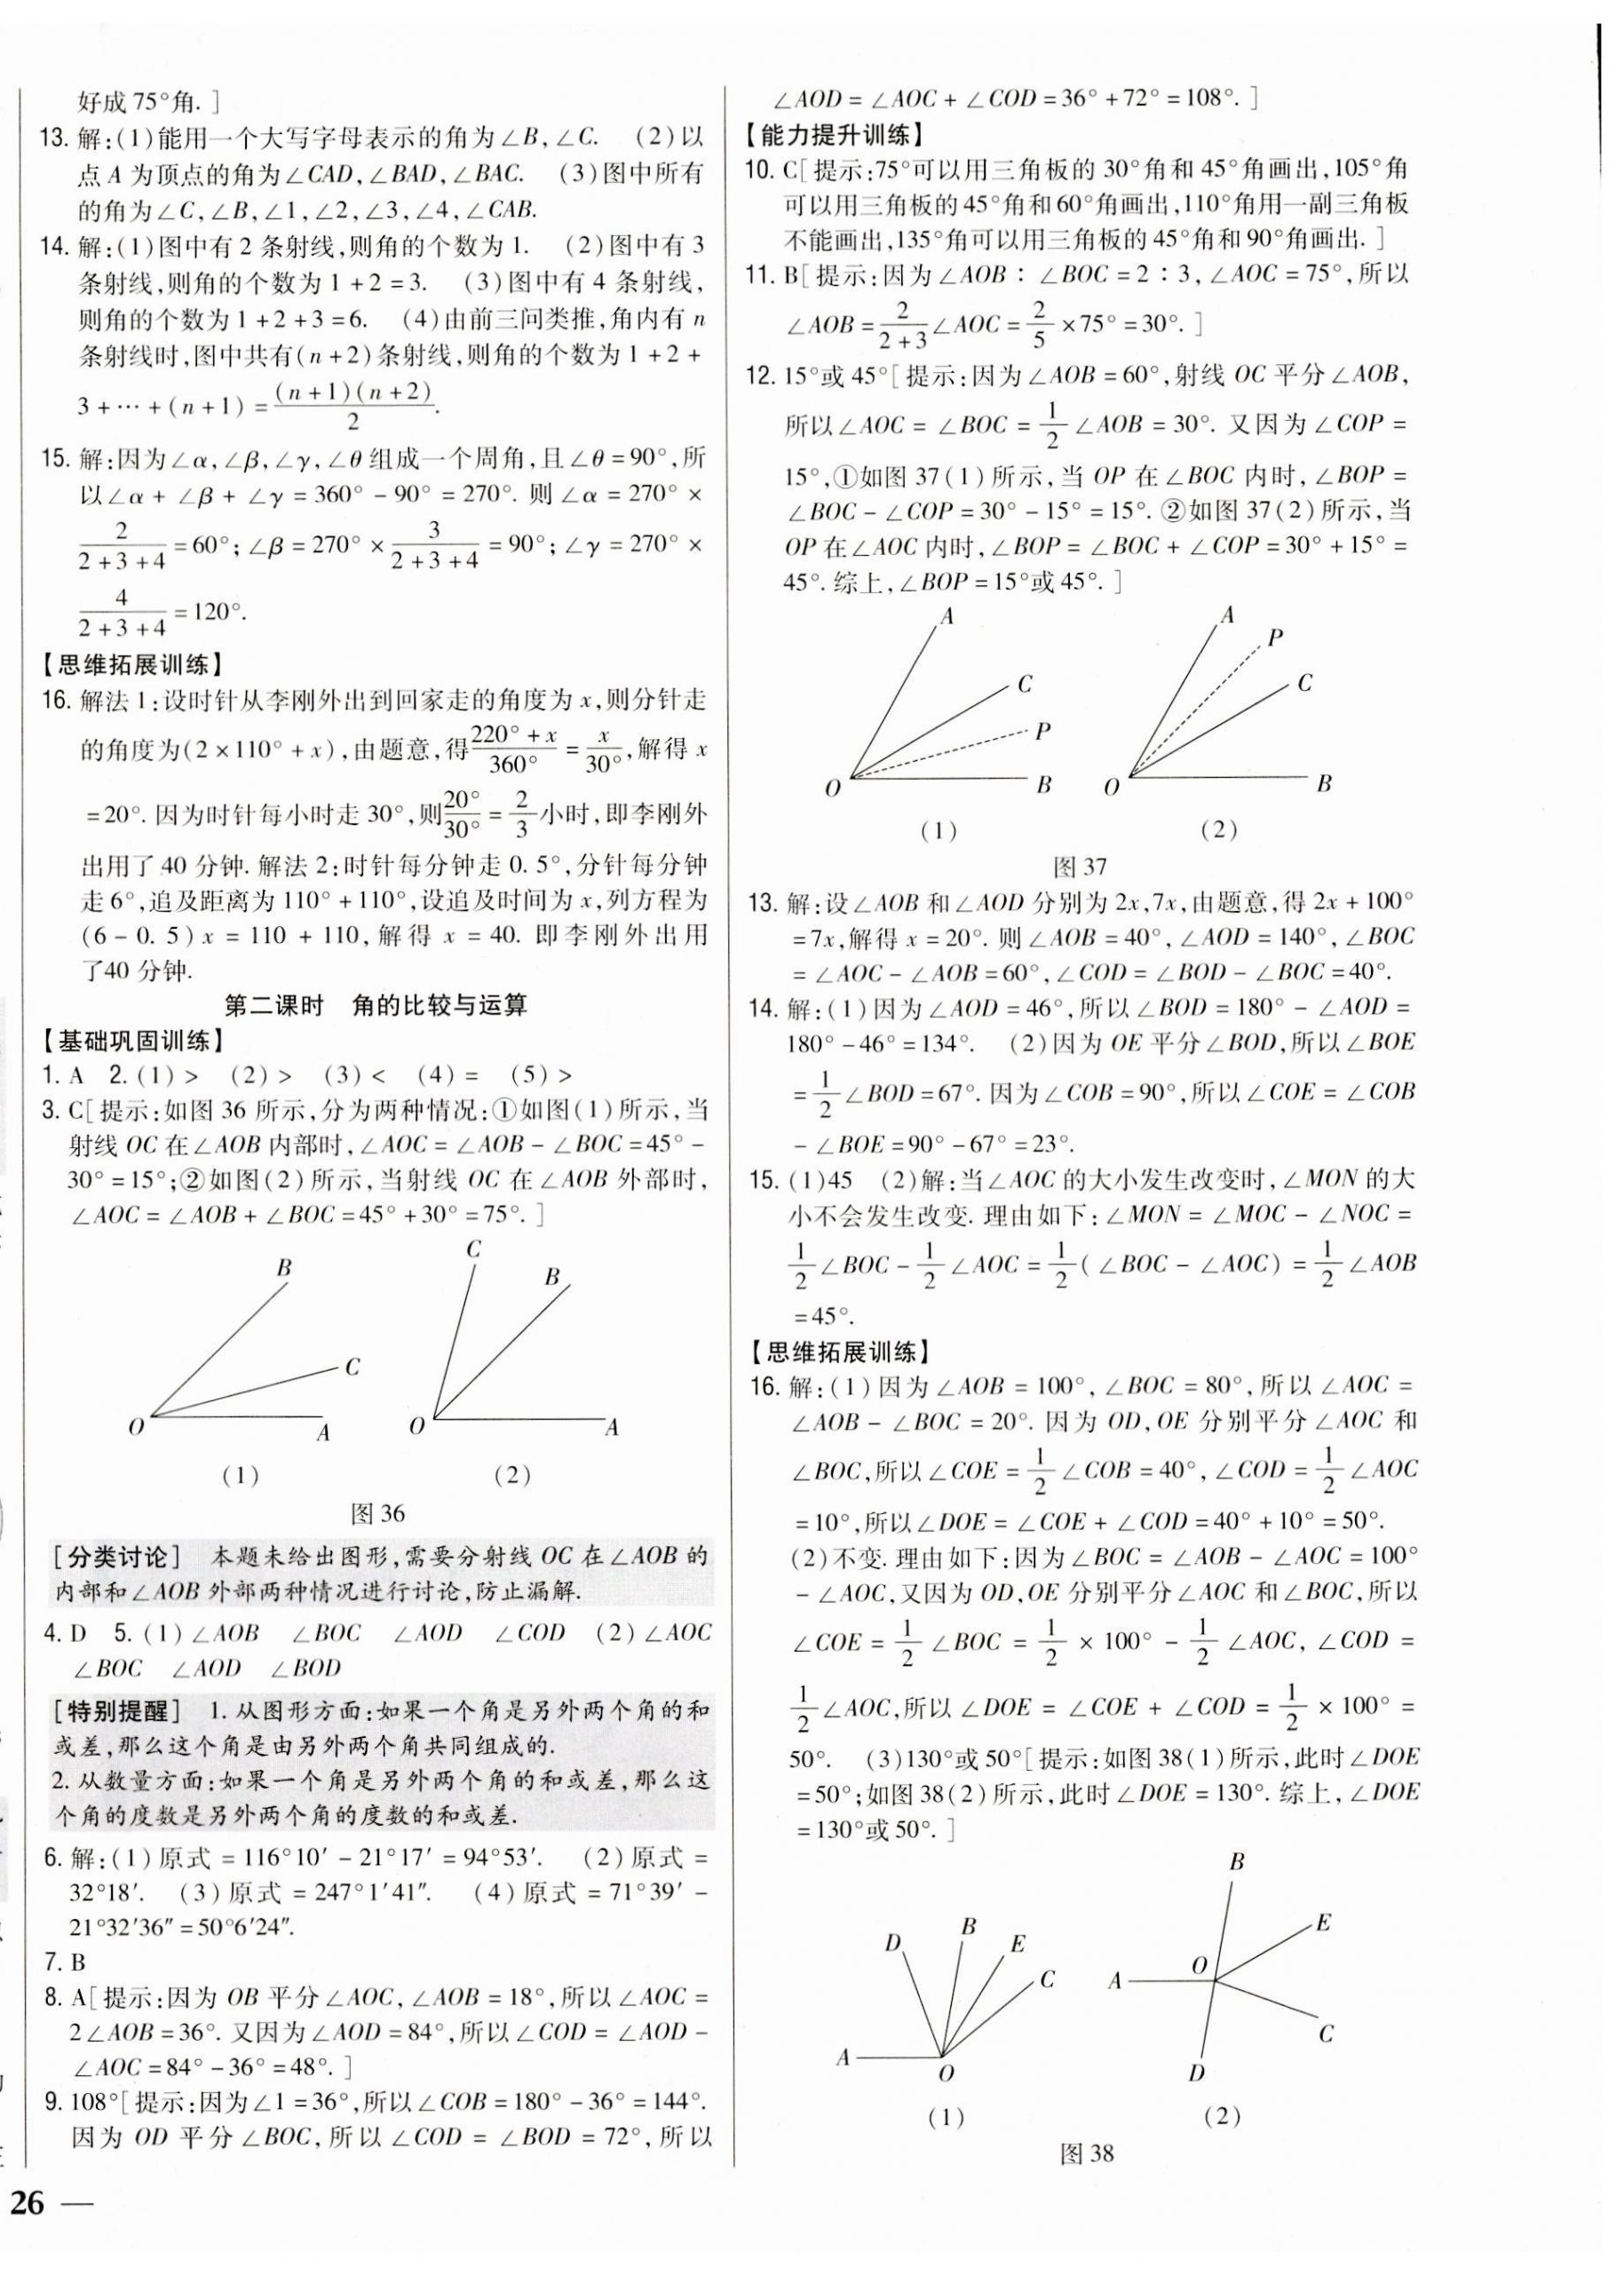 好成75°角.]
13. 解:(1)能用一个大写字母表示的角为∠B,∠C. (2)以
点A为顶点的角为∠CAD,∠BAD,∠BAC. (3)图中所有
的角为∠C,∠B,∠1,∠2,∠3,∠4,∠CAB.
14. 解:(1)图中有2条射线,则角的个数为1. (2)图中有3
条射线,则角的个数为1+2=3. (3)图中有4条射线,
则角的个数为1+2+3=6. (4)由前三问类推,角内有n
条射线时,图中共有(n+2)条射线,则角的个数为1+2+
3+…+(n+1)=(n+1)(n+2)/2.
15. 解:因为∠α,∠β,∠γ,∠θ组成一个周角,且∠θ=90°,所
以∠α+∠β+∠γ=360°-90°=270°.则∠α=270°×
2/(2+3+4)=60°;∠β=270°×3/(2+3+4)=90°;∠γ=270°×
4/(2+3+4)=120°.
【思维拓展训练】
16. 解法1:设时针从李刚外出到回家走的角度为x,则分针走
的角度为(2×110°+x),由题意,得(220°+x)/360°=x/30°,解得x
=20°.因为时针每小时走30°,则20°/30°=2/3小时,即李刚外
出用了40分钟.解法2:时针每分钟走0.5°,分针每分钟
走6°,追及距离为110°+110°,设追及时间为x,列方程为
(6-0.5)x=110+110,解得x=40.即李刚外出用
了40分钟.
第二课时 角的比较与运算
【基础巩固训练】
1. A 2. (1)> (2)> (3)< (4)= (5)>
3. C[提示:如图36所示,分为两种情况:①如图(1)所示,当
射线OC在∠AOB内部时,∠AOC=∠AOB-∠BOC=45°-
30°=15°;②如图(2)所示,当射线OC在∠AOB外部时,
∠AOC=∠AOB+∠BOC=45°+30°=75°.]
B
C
O
A
(1)
C
B
O
A
(2)
图36
[分类讨论] 本题未给出图形,需要分射线OC在∠AOB的
内部和∠AOB外部两种情况进行讨论,防止漏解.
4. D 5. (1)∠AOB ∠BOC ∠AOD ∠COD (2)∠AOC
∠BOC ∠AOD ∠BOD
[特别提醒] 1.从图形方面:如果一个角是另外两个角的和
或差,那么这个角是由另外两个角共同组成的.
2.从数量方面:如果一个角是另外两个角的和或差,那么这
个角的度数是另外两个角的度数的和或差.
6. 解:(1)原式=116°10′-21°17′=94°53′. (2)原式=
32°18′. (3)原式=247°1′41″. (4)原式=71°39′-
21°32′36″=50°6′24″.
7. B
8. A[提示:因为OB平分∠AOC,∠AOB=18°,所以∠AOC=
2∠AOB=36°.又因为∠AOD=84°,所以∠COD=∠AOD-
∠AOC=84°-36°=48°.]
9. 108°[提示:因为∠1=36°,所以∠COB=180°-36°=144°.
因为OD平分∠BOC,所以∠COD=∠BOD=72°,所以
26
∠AOD=∠AOC+∠COD=36°+72°=108°.]
【能力提升训练】
10. C[提示:75°可以用三角板的30°角和45°角画出,105°角
可以用三角板的45°角和60°角画出,110°角用一副三角板
不能画出,135°角可以用三角板的45°角和90°角画出.]
11. B[提示:因为∠AOB∶∠BOC=2∶3,∠AOC=75°,所以
∠AOB=2/(2+3)∠AOC=2/5×75°=30°.]
12. 15°或45°[提示:因为∠AOB=60°,射线OC平分∠AOB,
所以∠AOC=∠BOC=1/2∠AOB=30°.又因为∠COP=
15°,①如图37(1)所示,当OP在∠BOC内时,∠BOP=
∠BOC-∠COP=30°-15°=15°.②如图37(2)所示,当
OP在∠AOC内时,∠BOP=∠BOC+∠COP=30°+15°=
45°.综上,∠BOP=15°或45°.]
A
C
P
O
B
(1)
A
P
C
O
B
(2)
图37
13. 解:设∠AOB和∠AOD分别为2x,7x,由题意,得2x+100°
=7x,解得x=20°.则∠AOB=40°,∠AOD=140°,∠BOC
=∠AOC-∠AOB=60°,∠COD=∠BOD-∠BOC=40°.
14. 解:(1)因为∠AOD=46°,所以∠BOD=180°-∠AOD=
180°-46°=134°. (2)因为OE平分∠BOD,所以∠BOE
=1/2∠BOD=67°.因为∠COB=90°,所以∠COE=∠COB
-∠BOE=90°-67°=23°.
15. (1)45 (2)解:当∠AOC的大小发生改变时,∠MON的大
小不会发生改变.理由如下:∠MON=∠MOC-∠NOC=
1/2∠BOC-1/2∠AOC=1/2(∠BOC-∠AOC)=1/2∠AOB
=45°.
【思维拓展训练】
16. 解:(1)因为∠AOB=100°,∠BOC=80°,所以∠AOC=
∠AOB-∠BOC=20°.因为OD,OE分别平分∠AOC和
∠BOC,所以∠COE=1/2∠COB=40°,∠COD=1/2∠AOC
=10°,所以∠DOE=∠COE+∠COD=40°+10°=50°.
(2)不变.理由如下:因为∠BOC=∠AOB-∠AOC=100°
-∠AOC,又因为OD,OE分别平分∠AOC和∠BOC,所以
∠COE=1/2∠BOC=1/2×100°-1/2∠AOC,∠COD=
1/2∠AOC,所以∠DOE=∠COE+∠COD=1/2×100°=
50°. (3)130°或50°[提示:如图38(1)所示,此时∠DOE
=50°;如图38(2)所示,此时∠DOE=130°.综上,∠DOE
=130°或50°.]
D
B
E
C
A
O
(1)
B
E
O
A
C
D
(2)
图38